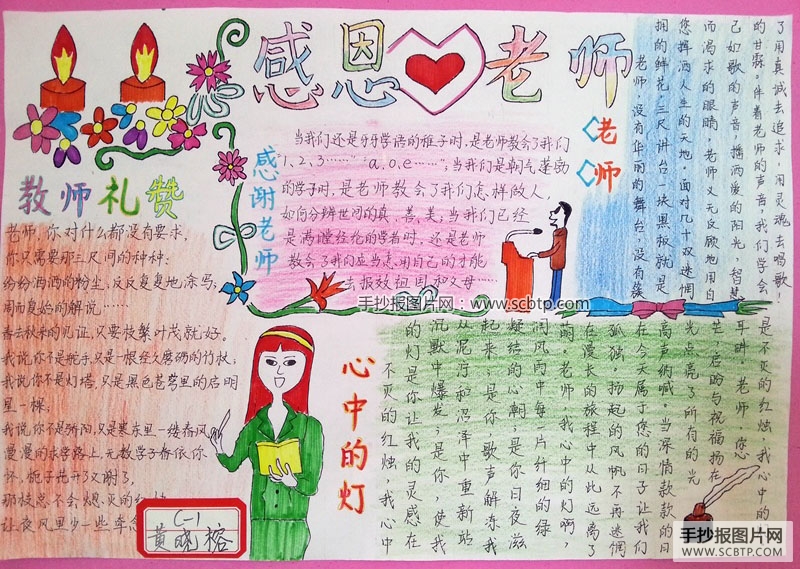 感恩老师
教师礼赞
老师,你对什么都没有要求,
你只需要那三尺间的种种:
纷纷洒洒的粉尘,反反复复地涂写,
周而复始的解说……
春去秋来的见证,只要枝繁叶茂就好。
我说你不是舵手,只是一根经久磨砺的竹枝;
我说你不是灯塔,只是黑色苍穹里的启明
星一棵;
我说你不是骄阳,只是寒冬里一缕春风
漫漫的求学路上,无数学子眷依你
怀,栀子花开了又谢了,
那枝总不会熄灭的红烛
让夜风里少一些牵念
C-1
黄晓榕
感谢老师
当我们还是牙牙学语的稚子时,是老师教会了我们
1、2、3……""a、o、e……";当我们是朝气蓬勃
的学子时,是老师教会了我们怎样做人,
如何分辨世间的真、善、美;当我们已经
是满膛经伦的学者时,还是老师
教会了我们应当怎用自己的才能
去报效祖国和父母……
手抄报图片网:www.scbtp.com
老师
老师,没有华丽的舞台,没有簇
拥的鲜花,三尺讲台一块黑板就是
您挥洒人生的天地,面对几十双迷惘
而渴求的眼睛,老师义无反顾地用自
己如歌的声音,播洒爱的阳光,智慧
的甘霖。伴着老师的声音,我们学会
了用真诚去追求,用灵魂去唱歌!
心中的灯
是不灭的红烛,我心中的
耳畔,老师,您
芒,启盼与祝福扬在
光点亮了所有的光
高声呐喊,当深情款款的日
在今天属于您的日子让我们
孤独,扬起的风帆不再迷惘
在漫长的旅程中从此远离了
萌。老师,我心中的灯啊,
润风雨中每一片纤细的绿
凝结的心潮;是你日夜滋
起来,是你,歌声解冻我
从泥泞和沼泽中重新站
沉默中爆发;是你,使我
的灯是你让我的灵感在
不灭的红烛,我心中
手抄报图片网
WWW.SCBTP.COM